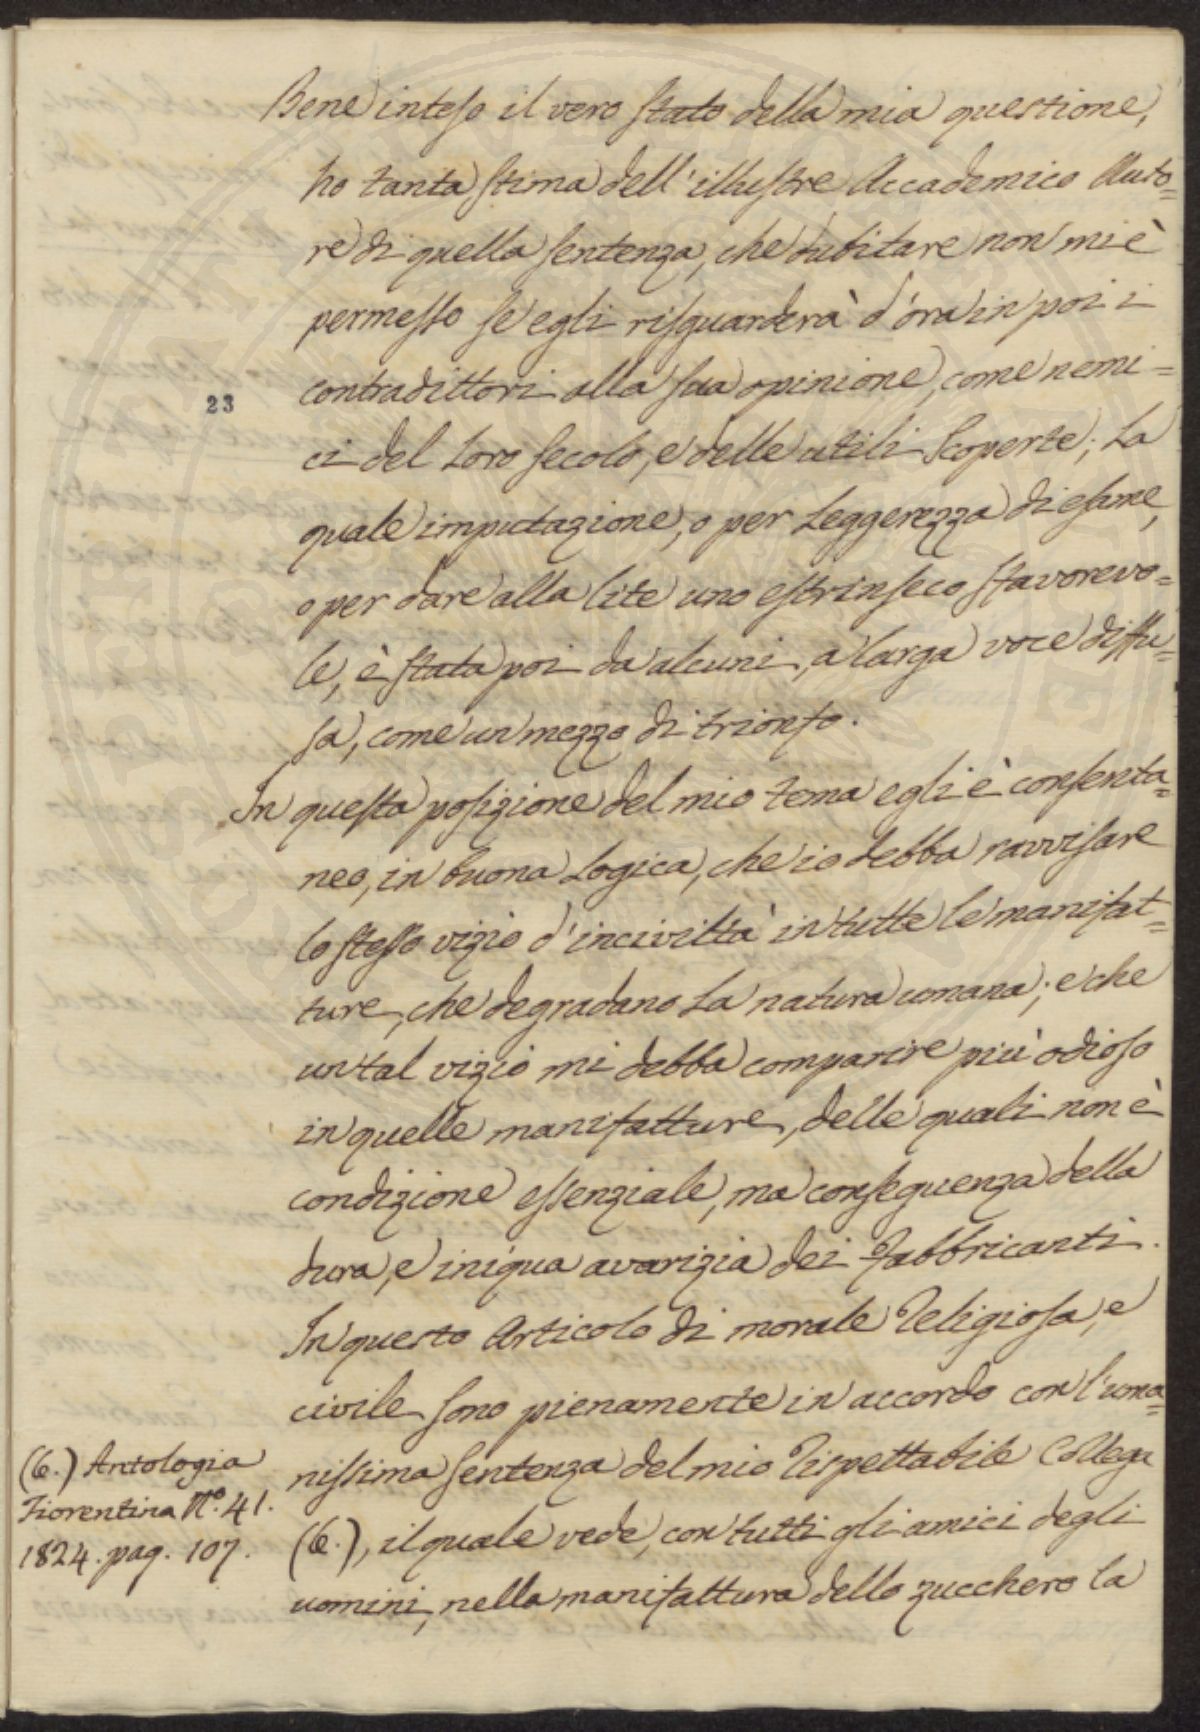 Bene inteso il vero stato della mia questione,
ho tanta stima dell'illustre Accademico Auto=
re di quella sentenza, che dubitare non mi è
permesso se egli risguarderà d'ora in poi i
contradittori alla sua opinione, come nemi=
23
ci del loro secolo, e delle utili scoperte; la
quale imputazione, o per leggerezza di esame,
o per dare alla lite uno estrinseco sfavorevo=
le, è stata poi da alcuni, a larga voce diffu=
sa, come un mezzo di trionfo.
In questa posizione del mio tema egli è consenta=
neo, in buona logica, che io debba ravvisare
lo stesso vizio d'inciviltà in tutte le manifat=
ture, che degradano la natura umana; e che
un tal vizio mi debba comparire più odioso
in quelle manifatture, delle quali non è
condizione essenziale, ma conseguenza della
dura, e iniqua avarizia dei fabbricanti.
In questo Articolo di morale Religiosa, e
civile sono pienamente in accordo con l'uma=
nissima sentenza del mio Rispettabile Collega
(6.), il quale vede, con tutti gli amici degli
uomini, nella manifattura dello zucchero la
(6.) Antologia
Fiorentina N.° 41.
1824. pag. 107.